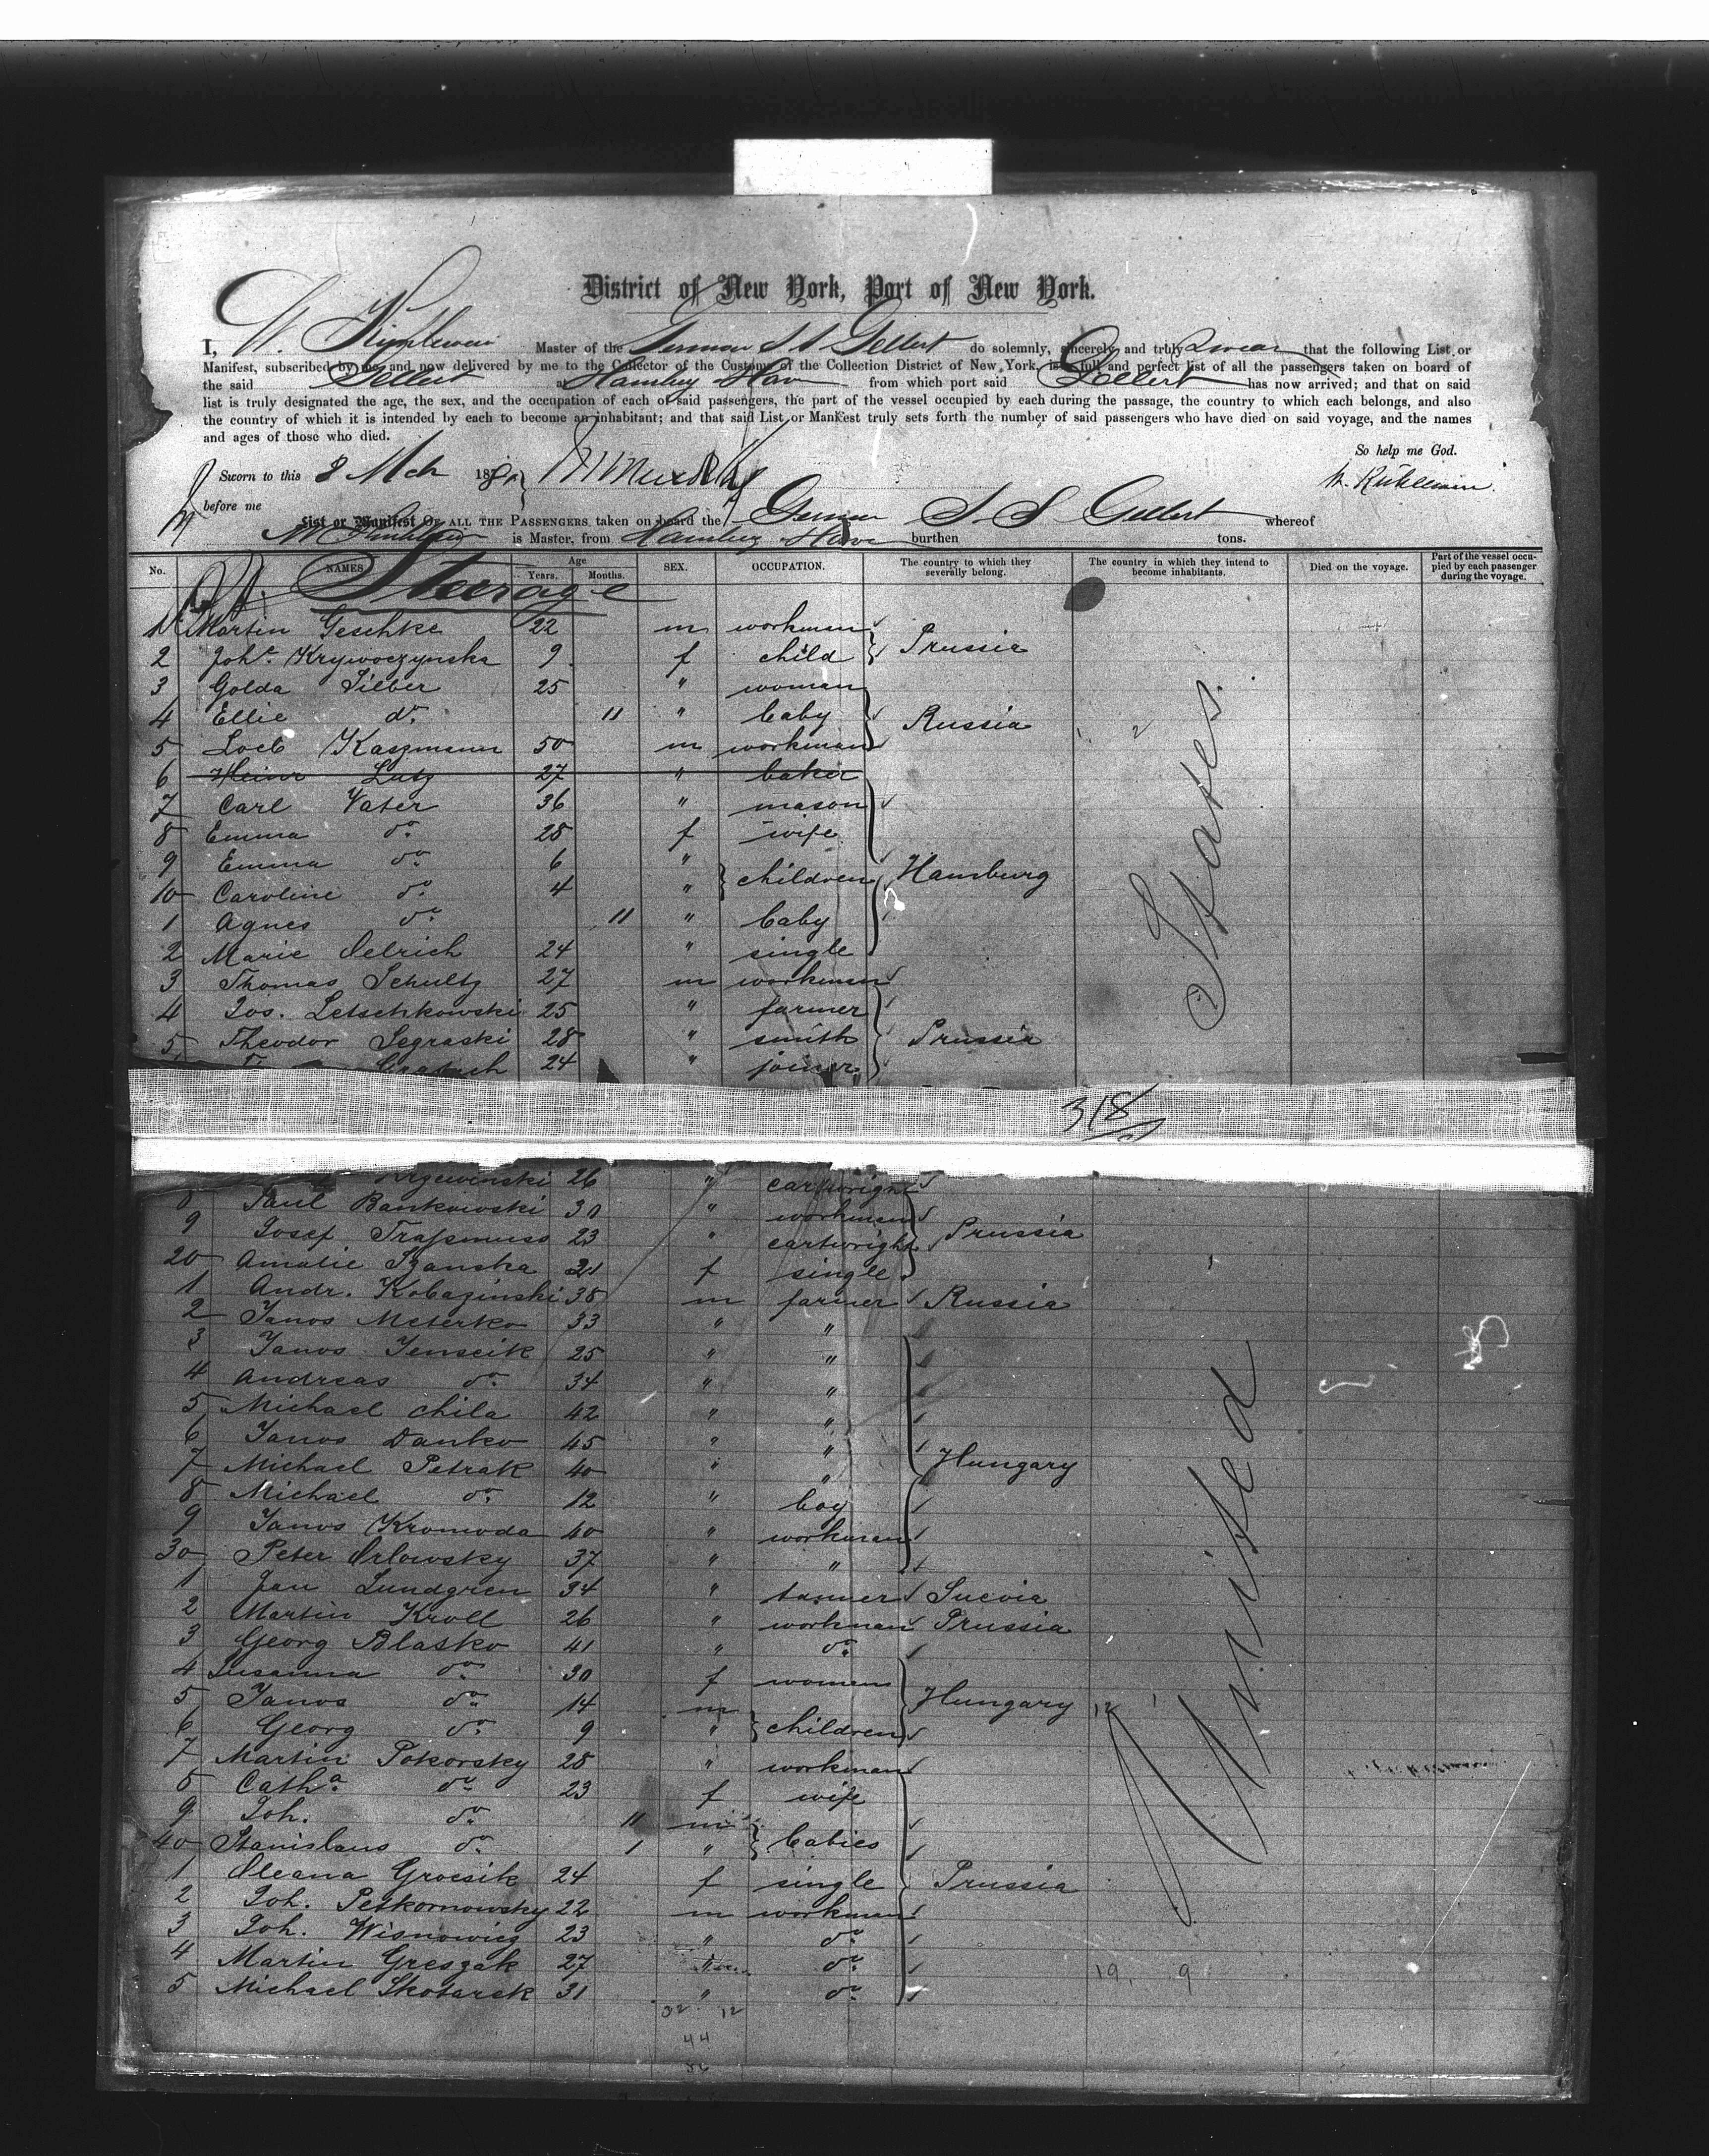 District of New York, Port of New York.
I, W. Kühlewein Master of the German SS Gellert do solemnly, sincerely and truly swear that the following List or
Manifest, subscribed by me, and now delivered by me to the Collector of the Customs of the Collection District of New York, is a full and perfect list of all the passengers taken on board of
the said Gellert at Hamburg Havre from which port said Gellert has now arrived; and that on said
list is truly designated the age, the sex, and the occupation of each of said passengers, the part of the vessel occupied by each during the passage, the country to which each belongs, and also
the country of which it is intended by each to become an inhabitant; and that said List or Manifest truly sets forth the number of said passengers who have died on said voyage, and the names
and ages of those who died.
So help me God.
Sworn to this 8 Mch 188
W. Kühlewein.
before me
List or Manifest OF ALL THE PASSENGERS taken on board the German S S Gellert whereof
W Kühlewein is Master, from Hamburg Havre burthen tons.
No. NAMES Age Years. Months. SEX. OCCUPATION. The country to which they severally belong. The country in which they intend to become inhabitants. Died on the voyage. Part of the vessel occupied by each passenger during the voyage.
Steerage
1 Martin Geschke 22 m workman
2 Joh.a Krywoczynska 9 f child Prussia
3 Golda Silber 25 " woman
4 Ellie do. 11 " baby Russia
5 Loeb Kaszmann 50 m workman
6 Heinr Lutz 27 " baker
7 Carl Vater 36 " mason
8 Emma do. 28 f wife
9 Emma do. 6 "
10 Caroline do. 4 " children Hamburg
1 Agnes do. 11 " baby
2 Marie Oelrich 24 " single
3 Thomas Schultz 27 m workman
4 Jos. Letschkowski 25 " farmer
5 Theodor Segraski 28 " smith Prussia
24 " joiner
318
26 " cartwright
8 Paul Bankowski 30 " workman
9 Josef Trapmuss 23 " cartwright Prussia
20 Amalie Szanska 21 f single
1 Andr. Kobazinski 38 m farmer Russia
2 Janos Meterko 33 " "
3 Janos Jenscik 25 " "
4 Andreas do. 34 " "
5 Michael Chila 42 " "
6 Janos Danko 45 " "
7 Michael Petrak 40 " " Hungary
8 Michael do. 12 " boy
9 Janos Kromoda 40 " workman
30 Peter Orlowsky 37 " "
1 Jan Lundgren 34 " farmer Suevia
2 Martin Kroll 26 " workman Prussia
3 Georg Blasko 41 " do.
4 Susanna do. 30 f woman
5 Janos do. 14 m Hungary
6 Georg do. 9 " children
7 Martin Pokorsky 28 " workman
8 Cath.a do. 23 f wife
9 Joh. do. 11 m
40 Stanislaus do. 1 " babies
1 Oleana Grocsik 24 f single Prussia
2 Joh. Petkornowsky 22 m workman
3 Joh. Wisnowicz 23 " do.
4 Martin Greszak 27 " do.
5 Michael Skotarek 31 " do.
United States.
19. 9
32 12
44